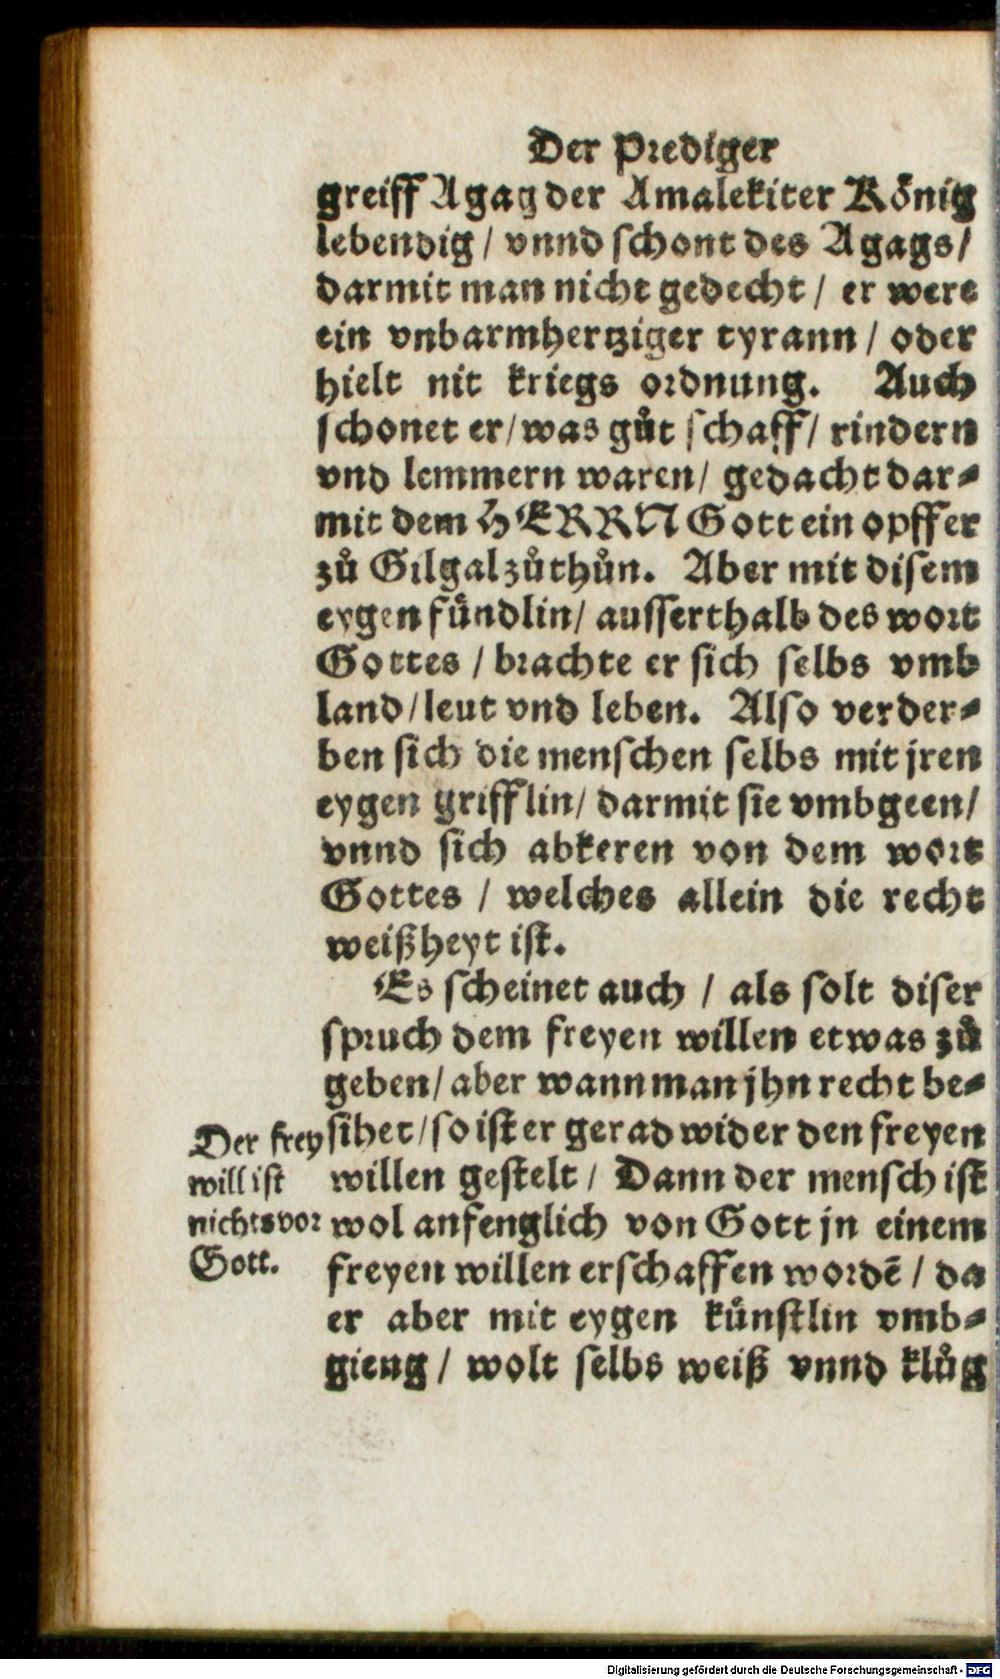 Der Prediger
greiff Agag der Amalekiter König
lebendig / vnnd schont des Agags /
darmit man nicht gedecht / er were
ein vnbarmhertziger tyrann / oder
hielt nit kriegs ordnung. Auch
schonet er / was gůt schaff / rindern
vnd lemmern waren / gedacht dar⸗
mit dem HERRN Gott ein opffer
zů Gilgal zůthůn. Aber mit disem
eygen fündlin / ausserthalb des wort
Gottes / brachte er sich selbs vmb
land / leut vnd leben. Also verder⸗
ben sich die menschen selbs mit jren
eygen grifflin / darmit sie vmbgeen /
vnnd sich abkeren von dem wort
Gottes / welches allein die recht
weißheyt ist.
Es scheinet auch / als solt diser
spruch dem freyen willen etwas zů
geben / aber wann man jhn recht be⸗
sihet / so ist er gerad wider den freyen
willen gestelt / Dann der mensch ist
wol anfenglich von Gott jn einem
freyen willen erschaffen wordē / da
er aber mit eygen künstlin vmb⸗
gieng / wolt selbs weiß vnnd klůg
Der frey
will ist
nichts vor
Gott.
Digitalisierung gefördert durch die Deutsche Forschungsgemeinschaft - DFG